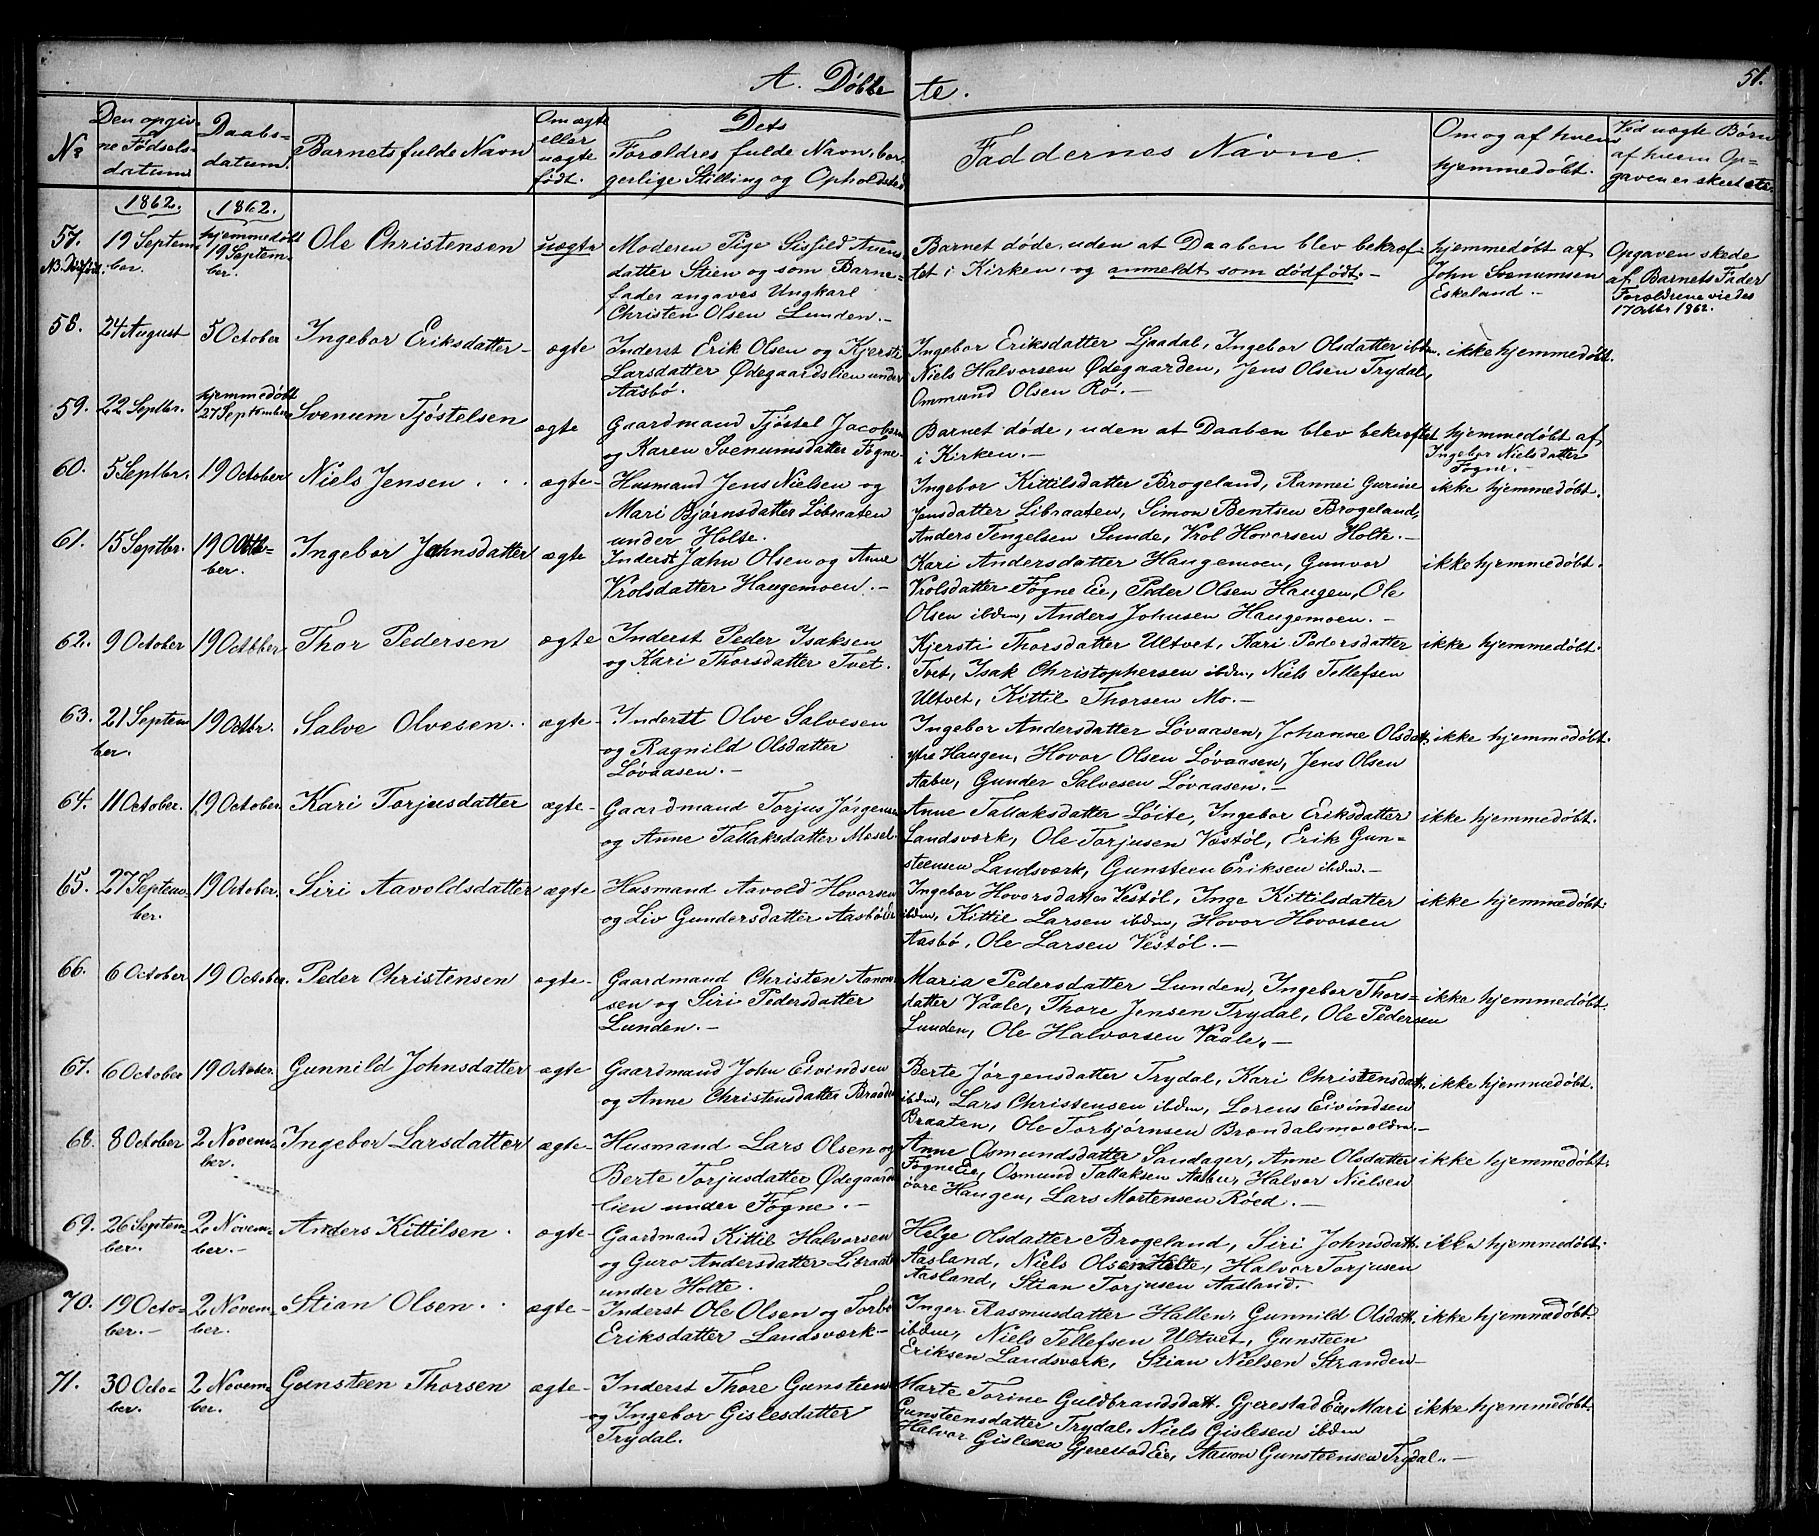 A. Døbte
51.
No
Den opgivne Fødselsdatum
Daabsdatum.
Barnets fulde Navn
Om ægte eller uægte født.
Dets Forældres fulde Navn, borgerlige Stilling og Opholdsted
Faddernes Navne.
Om og af hvem hjemmedøbt.
Ved uægte Børn af hvem Opgaven er skeet etc.
1862.
1862.
57.
19 September.
hjemmedøbt 19 September.
Ole Christensen
uægte
Moderen Pige
datter Stien og som Barnefader angaves Ungkarl
Christen Olsen Lunden.-
Barnet døde, uden at Daaben blev bekræftet i Kirken, og anmeldt som dødfødt.-
hjemmedøbt af
John Svenumsen
Eskeland.-
Opgaven skede
af Barnets Fader
Forældrene viedes
17 Octbr 1862.
58.
24 August
5 October
Ingebor Eriksdatter
ægte
Inderst Erik Olsen og Kjersti
Larsdatter Ødegaardslien under
Aasbø.
Ingebor Eriksdatter Ljaadal, Ingebor Olsdatter ibdm.
Niels Halvorsen Ødegaarden, Jens Olsen Trydal,
Ommund Olsen Rø.-
ikke hjemmedøbt.
59.
22 Septbr.
hjemmedøbt 27 September
Svenum Tjøstelsen
ægte
Gaardmand Tjøstel Jacobsen
og Karen Svenumsdatter Fogne.
Barnet døde, uden at Daaben blev bekræftet
i Kirken.-
hjemmedøbt af
Ingebor Nielsdatter
Fogne.-
60.
5 Septbr.
19 October
Niels Jensen
ægte-
Husmand Jens Nielsen og
Mari Bjørnsdatter Libraaten
under Holte.
Ingebor Kittilsdatter Brogeland, Rannei Gurine
Jensdatter Libraaten, Simon Bentsen Brogeland,
Anders Tengelsen Sunde, Vrol Hovorsen Holte.-
ikke hjemmedøbt.
61.
15 Septbr.
19 October.
Ingebor Jahnsdatter
ægte
Inderst Jahn Olsen og Anne
Vrolsdatter Haugemoen.-
Kari Andersdatter Haugemoen, Gunvor
Vrolsdatter Fogne Eie, Peder Olsen Haugen, Ole
Olsen ibdm, Anders Johnsen Haugemoen.-
ikke hjemmedøbt.
62.
9 October
19 October
Thor Pedersen
ægte
Inderst Peder Isaksen
og Kari Thorsdatter Tvet.
Kjersti Thorsdatter Ultvet, Kari Pedersdatter
Tvet, Isak Christophersen ibdm, Niels Tellefsen
Ultvet, Kittil Thorsen Mo.-
ikke hjemmedøbt.
63.
21 September.
19 Octbr.
Salve Olvesen.
ægte-
Inderst Olve Salvesen
og Ragnild Olsdatter
Løvaasen.-
Ingebor Andersdatter Løvaasen, Johanne Olsdatt.
ytre Haugen, Hovor Olsen Løvaasen, Jens Olsen
Aabu, Gunder Salvesen Løvaasen.-
ikke hjemmedøbt.
64.
11 October.
19 October
Kari Torjusdatter
ægte-
Gaardmand Torjus Jørgensen
og Anne Tallaksdatter Mosel.
Anne Tallaksdatter Løite, Ingebor Eriksdatter
Landsværk, Ole Torjusen Vestøl, Erik Gunsteensen Landsværk, Gunsteen Eriksen ibdm.-
ikke hjemmedøbt.
65.
27 September.
19 October.
Siri Aavoldsdatter
ægte
Husmand Aavold Hovorsen
og Liv Gundersdatter Aasbø Eie
Ingebor Hovorsdatter Vestøl, Inge Kittilsdatter
ibdm, Kittil Larsen ibdm, Hovor Hovorsen
Aasbø, Ole Larsen Vestøl.-
ikke hjemmedøbt.
66.
6 October
19 October.
Peder Christensen
ægte-
Gaardmand Christen Aanonsen og Siri Pedersdatter
Lunden.-
Maria Pedersdatter Lunden, Ingebor Thorsdatter Vaale, Thore Jensen Trydal, Ole Pedersen
Lunden, Ole Halvorsen Vaale.-
ikke hjemmedøbt.
67.
6 October
19 October.
Gunnild Johnsdatter
ægte
Gaardmand John Eivindsen
og Anne Christensdatter Braaten
Berte Jørgensdatter Trydal, Kari Christensdatt.
ibdm, Lars Christensen ibdm, Lorens Eivindsen
Braaten, Ole Torbjørnsen Brændalsmo ældre.-
ikke hjemmedøbt.
68.
8 October
2 November.
Ingebor Larsdatter
ægte-
Husmand Lars Olsen og
Berte Torjusdatter Ødegaardslien under Fogne.-
Anne Osmundsdatter Sandager, Anne Olsdatter
Fogne Eie, Osmund Tallaksen Aabu, Halvor Nielsen
øvre Haugen, Lars Mortensen Røed.-
ikke hjemmedøbt.
69.
26 September.
2 November.-
Anders Kittilsen.
ægte-
Gaardmand Kittil Halvorsen
og Guro Andersdatter Libraaten
under Holte.
Helge Olsdatter Brogeland, Siri Johnsdatt.
Aasland, Niels Olsen Holte, Halvor Torjusen
Aasland, Stian Torjusen Aasland.
ikke hjemmedøbt.
70.
19 October.-
2 November.
Stian Olsen.
ægte-
Inderst Ole Olsen og Torbor
Eriksdatter Landsværk-
Inger Rasmusdatter Hallen, Gunnild Olsdatt.
ibdm, Niels Tellefsen Ultvet, Gunsteen
Eriksen Landsværk, Stian Nielsen Stranden-
ikke hjemmedøbt.
71.
30 October.
2 November.
Gunsteen Thorsen
ægte-
Inderst Thore Gunsteensen
og Ingebor Gislesdatter
Trydal.
Marte Torine Guldbrandsdatt. Gjerestad Eie, Mari
Gunsteensdatter Trydal, Niels Gislesen ibdm
Halvor Gislesen Gjerestad Eie, Aanon Gunsteensen Trydal.-
ikke hjemmedøbt.